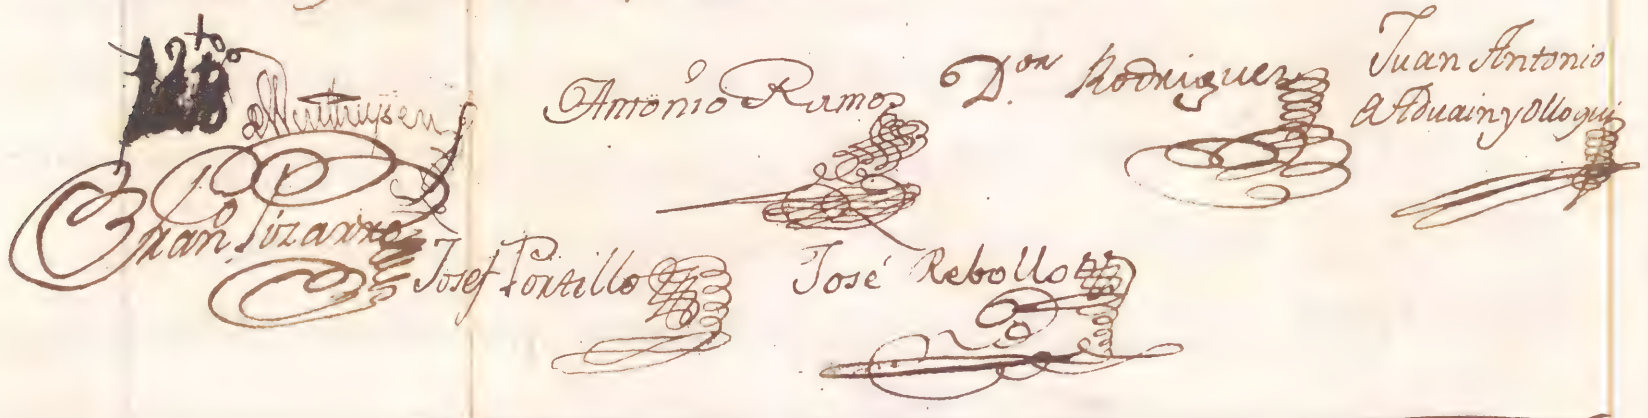 Antonio Ramos
D.on Rodriguez
Juan Antonio
Aduain y Olloqui
Juan Pizarro
Josef Portillo
José Rebollo